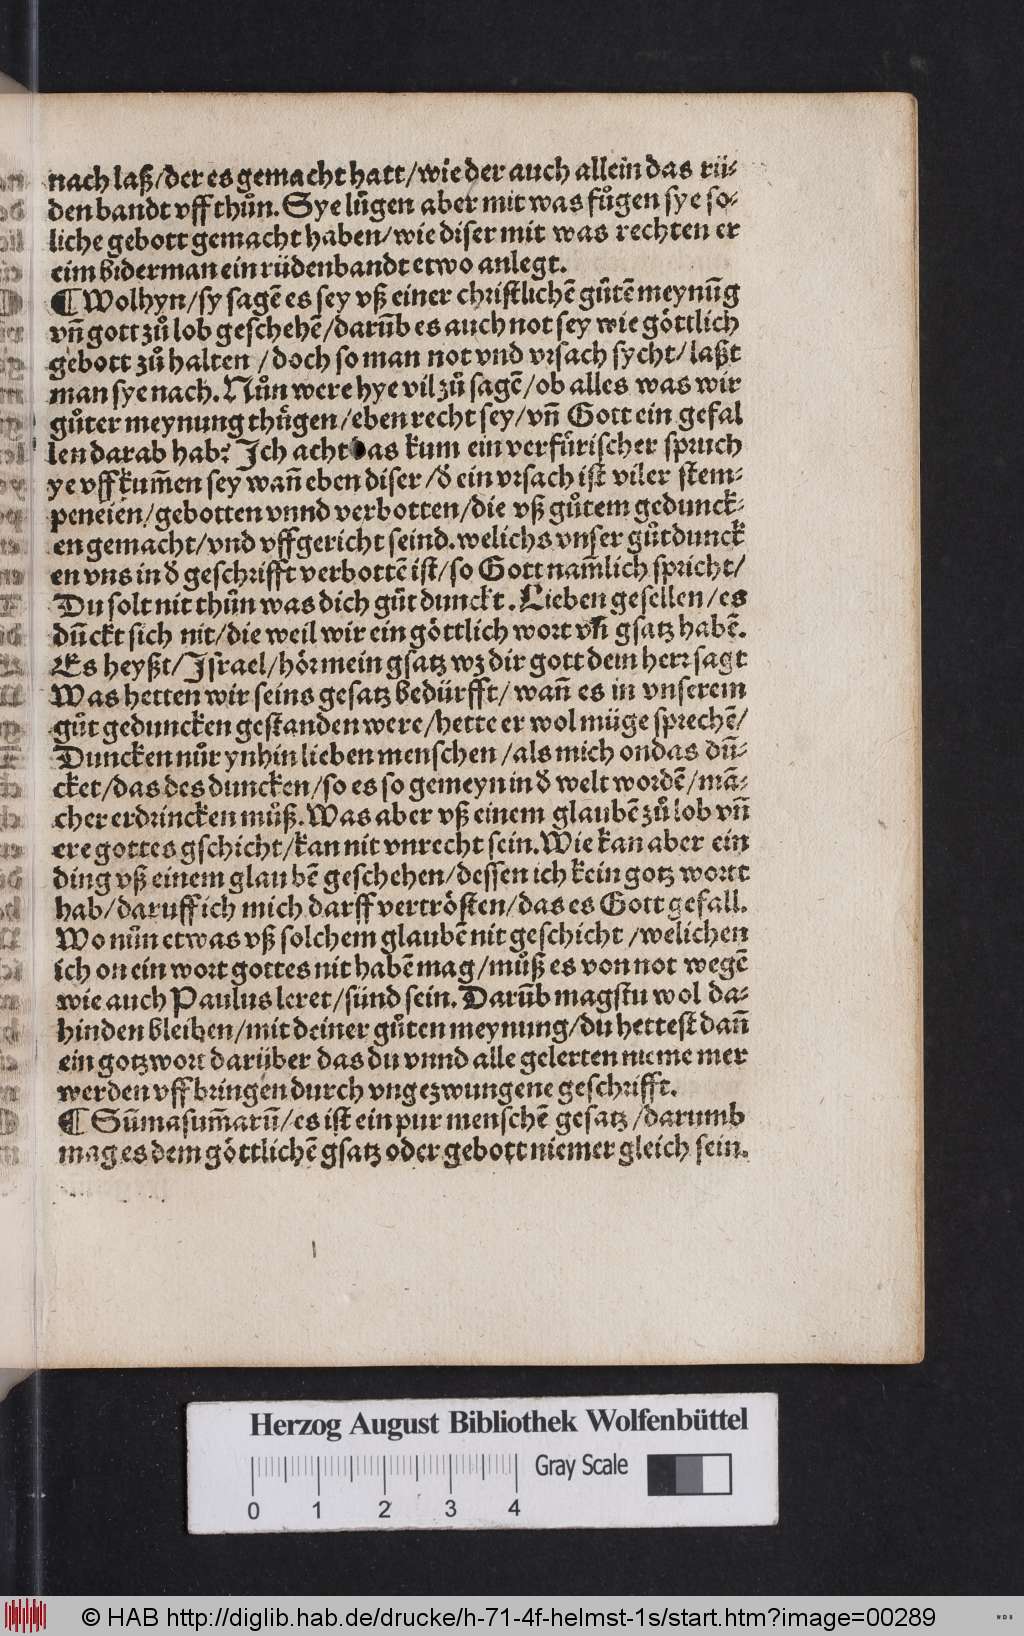 nach laß/der es gemacht hatt/wie der auch allein das rü⸗
den bandt vff thůn. Sye lůgen aber mit was fůgen sye so⸗
liche gebott gemacht haben/wie diser mit was rechten er
eim biderman ein rüdenbandt etwo anlegt.
¶ Wolhyn/sy sagē es sey vß einer christlichē gůtē meynūg
vñ gott zů lob geschehē/darūb es auch not sey wie göttlich
gebott zů halten /doch so man not vnd vrsach sycht/laßt
man sye nach. Nůn were hye vil zů sagē/ob alles was wir
gůter meynung thůgen/eben recht sey/vñ Gott ein gefal
len darab hab? Ich acht das kum ein verfůrischer spruch
ye vff kum̄en sey wañ eben diser/ð ein vrsach ist viler stem⸗
peneien/gebotten vnnd verbotten/die vß gůtem gedunck⸗
en gemacht/vnd vffgericht seind. welichs vnser gůtdunck
en vns in ð geschrifft verbottē ist/so Gott nam̄lich spricht/
Du solt nit thůn was dich gůt dunckt. Lieben gesellen/es
dūckt sich nit/die weil wir ein göttlich wort vñ gsatz habē.
Es heyßt/Israel/hör mein gsatz wz dir gott dem herr sagt
Was hetten wir seins gesatz bedürfft/wañ es in vnserem
gůt geduncken gestanden were/hette er wol müge sprechē/
Duncken nůr ynhin lieben menschen/als mich on das dū⸗
cket/das des duncken/so es so gemeyn in ð welt wordē/mā⸗
cher erdrincken můß. Was aber vß einem glaubē zů lob vñ
ere gottes gschicht/kan nit vnrecht sein. Wie kan aber ein
ding vß einem glaubē geschehen/dessen ich kein gotz wortt
hab/daruff ich mich darff vertrösten/das es Gott gefall.
Wo nůn etwas vß solchem glaubē nit geschicht/welichen
ich on ein wort gottes nit habē mag/můß es von not wegē
wie auch Paulus leret/sünd sein. Darūb magstu wol da⸗
hinden bleiben/mit deiner gůten meynung/du hettest dañ
ein gotzwort darüber das du vnnd alle gelerten nieme mer
werden vffbringen durch vngezwungene geschrifft.
¶ Sūmasum̄arū/es ist ein pur menschē gesatz/darumb
mag es dem göttlichē gsatz oder gebott niemer gleich sein.
Herzog August Bibliothek Wolfenbüttel
Gray Scale
0 1 2 3 4
© HAB http://diglib.hab.de/drucke/h-71-4f-helmst-1s/start.htm?image=00289